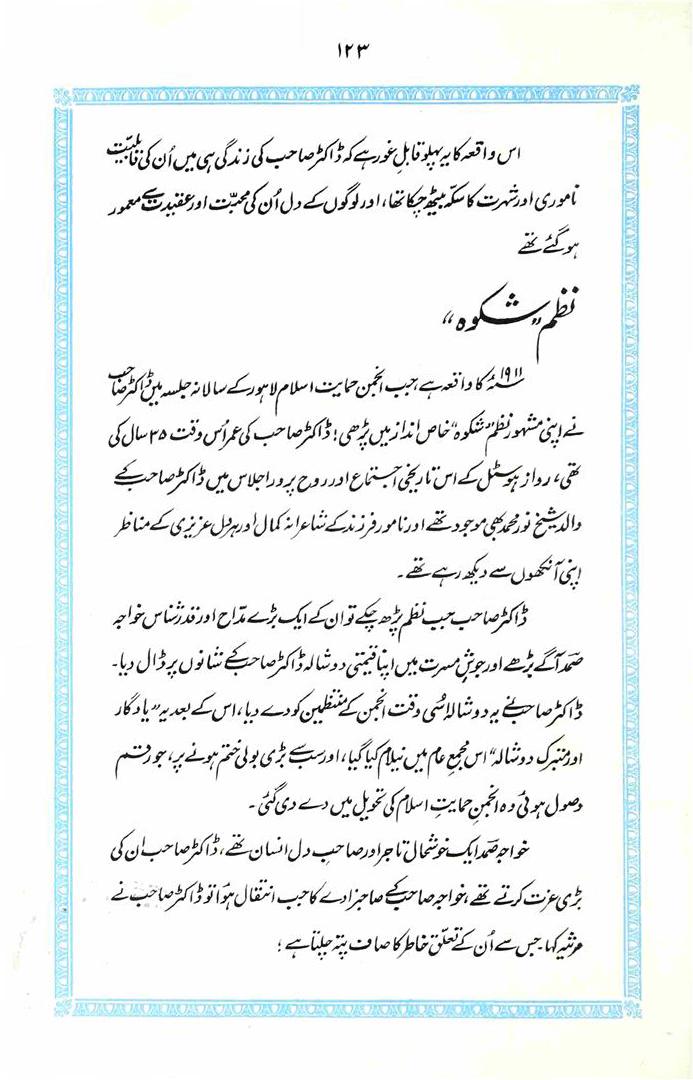 ۱۲۳
اس واقعہ کا یہ پہلو قابلِ غور ہے کہ ڈاکٹر صاحب کی زندگی ہی میں اُن کی قابلیت
ناموری اور شہرت کا سکّہ بیٹھ چکا تھا، اور لوگوں کے دل اُن کی محبّت اور عقیدت سے معمور
ہو گئے تھے
نظم “شکوہ”
۱۹۱۱ء کا واقعہ ہے، جب انجمن حمایت اسلام لاہور کے سالانہ جلسہ میں ڈاکٹر صاحب
نے اپنی مشہور نظم “شکوہ” خاص انداز میں پڑھی؛ ڈاکٹر صاحب کی عمر اُس وقت ۳۵ سال کی
تھی، رواز ہوسٹل کے اس تاریخی اجتماع اور روح پرور اجلاس میں ڈاکٹر صاحب کے
والد شیخ نور محمد بھی موجود تھے اور نامور فرزند کے شاعرانہ کمال اور ہر دل عزیزی کے مناظر
اپنی آنکھوں سے دیکھ رہے تھے۔
ڈاکٹر صاحب جب نظم پڑھ چکے تو ان کے ایک بڑے مدّاح اور قدر شناس خواجہ
صمد آگے بڑھے اور جوشِ مسرت میں اپنا قیمتی دوشالہ ڈاکٹر صاحب کے شانوں پر ڈال دیا۔
ڈاکٹر صاحب نے یہ دوشالہ اُسی وقت انجمن کے منتظمین کو دے دیا، اس کے بعد یہ “یادگار
اور متبرک دوشالہ” اس مجمع عام میں نیلام کیا گیا، اور سب سے بڑی بولی ختم ہونے پر، جو رقم
وصول ہوئی وہ انجمنِ حمایتِ اسلام کی تحویل میں دے دی گئی۔
خواجہ صمد ایک خوشحال تاجر اور صاحبِ دل انسان تھے، ڈاکٹر صاحب ان کی
بڑی عزت کرتے تھے، خواجہ صاحب کے صاحبزادے کا جب انتقال ہوا تو ڈاکٹر صاحب نے
مرثیہ کہا، جس سے اُن کے تعلّقِ خاطر کا صاف پتہ چلتا ہے؛